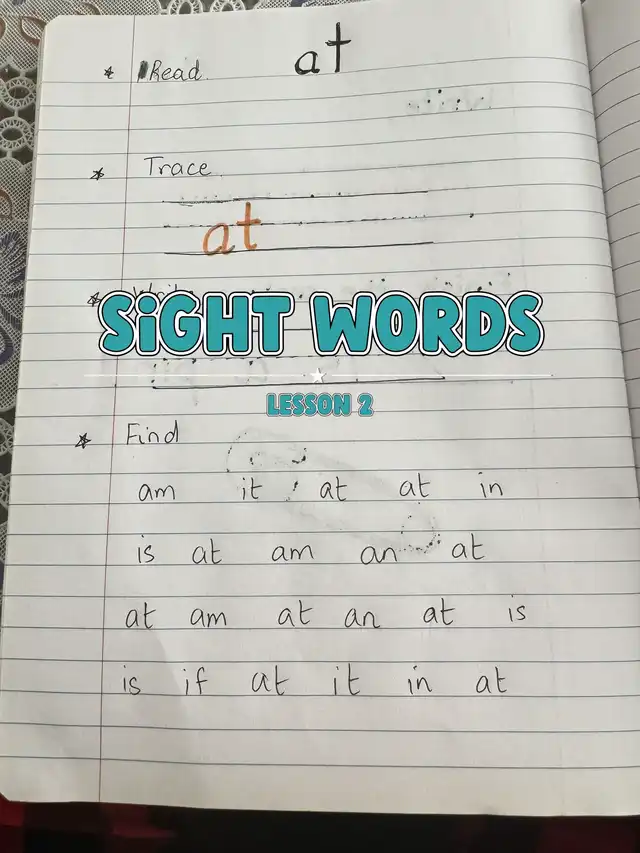 * Read at
* Trace
at
*
SiGHT WORDS
LESSON 2
* Find
am it at at in
is at am an at
at am at an at is
is if at it in at